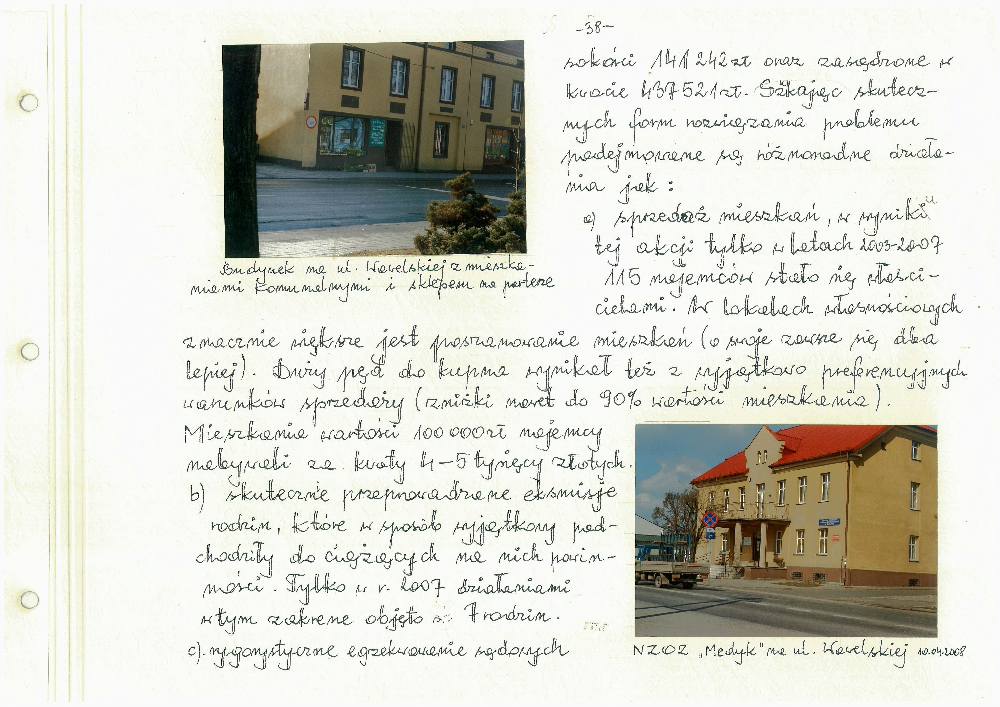 -38-
sokości 141 242 zł oraz zasądzone w
kwocie 437 521 zł. Szkając skutecz-
nych form rozwiązania problemu
podejmowane są różnorodne działa-
nia jak :
a) sprzedaż mieszkań, w wyniku
tej akcji tylko w latach 2003-2007
115 najemców stało się właści-
cielami. W lokalach własnościowych
znacznie większe jest poszanowanie mieszkań (o swoje zawsze się dba
lepiej). Duży pęd do kupna wynikał też z wyjątkowo preferencyjnych
warunków sprzedaży (zniżki nawet do 90% wartości mieszkania).
Mieszkania wartości 100 000 zł najemcy
nabywali za kwoty 4-5 tysięcy złotych.
b) skutecznie przeprowadzone eksmisje
rodzin, które w sposób wyjątkowy pod-
chodziły do ciążących na nich powin-
ności. Tylko w r. 2007 działaniami
w tym zakresie objęto 7 rodzin.
c) rygorystyczne egzekwowanie sądowych
Budynek na ul. Wawelskiej z mieszka-
niami komunalnymi i sklepem na parterze
NZOZ „Medyk" na ul. Wawelskiej 10.04.2008